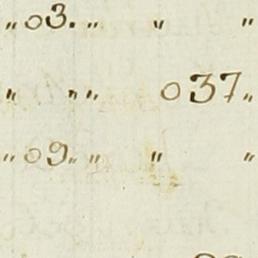 „ 03. „ „ „
„ „ „ 037 „
„ 09 „ „ „ „